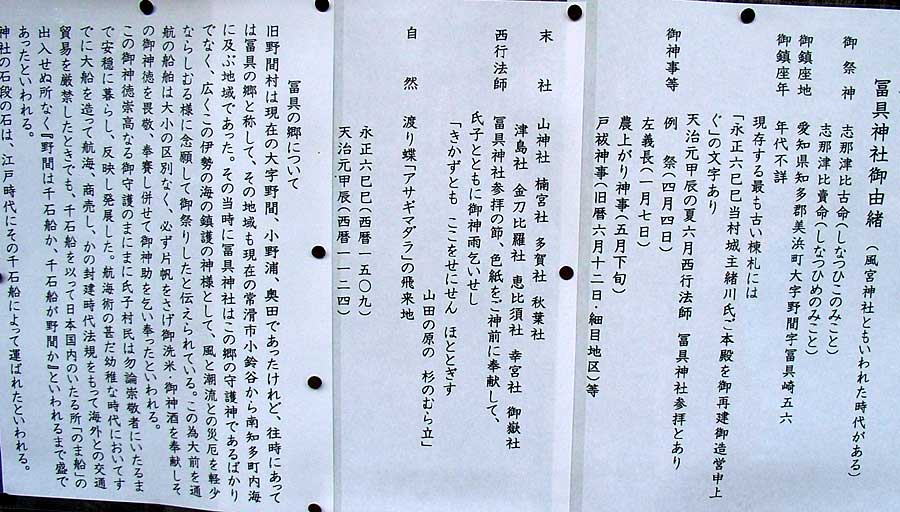 冨具神社御由緒 (風宮神社ともいわれた時代がある)
御祭神 志那津比古命(しなつひこのみこと)
志那津比賣命(しなつひめのみこと)
御鎮座地 愛知県知多郡美浜町大字野間字冨具崎五六
御鎮座年 年代不詳
現存する最も古い棟札には
「永正六巳巳当村城主緒川氏ご本殿を御再建御造営申上
ぐ」の文字あり
天治元甲辰の夏六月西行法師 冨具神社参拝とあり
御神事等 例 祭(四月四日)
左義長(一月七日)
農上がり神事(五月下旬)
戸祓神事(旧暦六月十二日・細目地区)等
末 社 山神社 楠宮社 多賀社 秋葉社
津島社 金刀比羅社 恵比須社 幸宮社 御嶽社
西行法師 冨具神社参拝の節、色紙をご神前に奉献して、
氏子とともに御神雨乞いせし
「きかずとも ここをせにせん ほととぎす
山田の原の 杉のむら立」
自 然 渡り蝶「アサギマダラ」の飛来地
永正六巳巳(西暦一五〇九)
天治元甲辰(西暦一一二四)
冨具の郷について
旧野間村は現在の大字野間、小野浦、奥田であったけれど、往時にあって
は冨具の郷と称して、その地域も現在の常滑市小鈴谷から南知多町内海
に及ぶ地域であった。その当時に冨具神社はこの郷の守護神であるばかり
でなく、広くこの伊勢の海の鎮護の神様として、風と潮流との災厄を軽少
ならしむる様に念願して御祭りしたと伝えられている。この為大前を通
航の船舶は大小の区別なく、必ず片帆をさげ御洗米、御神酒を奉献しそ
の御神徳を畏敬、奉賽し併せて御神助を乞い奉ったといわれる。
この御神徳崇高なる御守護のまにまに氏子村民は勿論崇敬者にいたるま
で安穏に暮らし、反映し発展した。航海術の甚だ幼稚な時代においてす
でに大船を造って航海、商売し、かの封建時代法規をもって海外との交通
貿易を厳禁したときでも、千石船を以って日本国内のいたる所「のま船」の
出入せぬ所なく『野間は千石船か、千石船が野間か』といわれるまで盛で
あったといわれる。
神社の石段の石は、江戸時代にその千石船によって運ばれたといわれる。